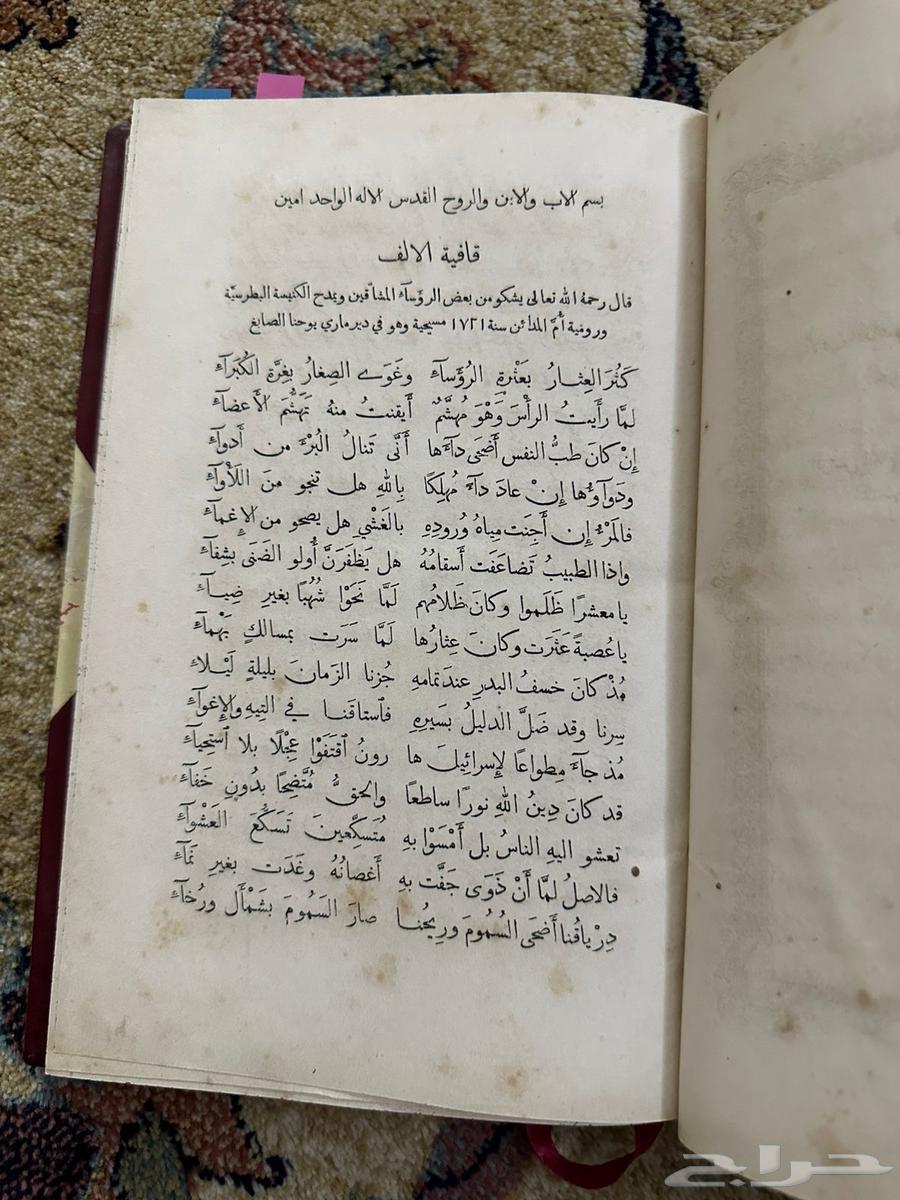 بسم الاب والابن والروح القدس الاله الواحد امين
قافية الالف
قال رحمهُ الله تعالى يشكو من بعض الرؤَسآء المشاقين ويمدح الكنيسة البطرسيَّة
ورومية أُمَّ المدائن سنة ١٧٢١ مسيحية وهو في دير ماري يوحنا الصابغ
كَثُرَ العِثارُ بعَثْرةِ الرُؤَسآءِ وغَوَى الصِغارُ بِغِرَّةِ الكُبَرآءِ
لمَّا رأَيتُ الرأْسَ وَهْوَ مُهشَّمٌ أَيقنتُ منهُ تَهَشُّمَ الأَعضآءِ
إِنْ كانَ طبُّ النفسِ أَضحَى دآءَها أَنَّى تَنالُ البُرْءَ من أَدوآءِ
ودَوآؤُها إِنْ عادَ دآءً مُهلِكًا بِاللهِ هل تنجو منَ اللَأْوآءِ
فالمَرْءُ إِن أَجِنَت مِياهُ وُرودِهِ بالغَشْيِ هل يصحو من الإِغمآءِ
واذا الطبيبُ تَضاعَفَت أَسقامُهُ هل يَظفَرَنَّ أُولو الضَنَى بشِفآءِ
يا معشرًا ظَلَموا وكانَ ظلامُهم لَمَّا نَحَوْا شُهُبًا بغيرِ ضِيآءِ
يا عُصبةً عَثَرَت وكانَ عِثارُها لَمَّا سَرَت بمسالكٍ يَهْمآءِ
مُذ كانَ خسفُ البدرِ عندَ تمامهِ جُزنا الزَمانَ بليلةٍ لَيْلاءِ
سِرنا وقد ضَلَّ الدليلُ بسَيرِهِ فاستاقَنا في التِيهِ والإِغوآءِ
مُذ جآءَ مِطواعًا لإِسرائِيلَ ها رونُ اقتَفَوْا عِجْلًا بلا استِحيآءِ
قد كانَ دِينُ اللهِ نورًا ساطعًا والحقُّ مُتَّضِحًا بدُونِ خَفآءِ
تعشو اليهِ الناسُ بل أَمْسَوْا بهِ مُتَسكِّعينَ تَسَكُّعَ العَشْوآءِ
فالاصلُ لمَّا أَنْ ذَوَى جَفَّت بهِ أَغصانُهُ وغَدَت بغيرِ نَمآءِ
دِرْياقُنا أَضحَى السُمُومَ ورِيحُنا صارَ السَمُومَ بشَمْأَلٍ ورُخآءِ
حراج